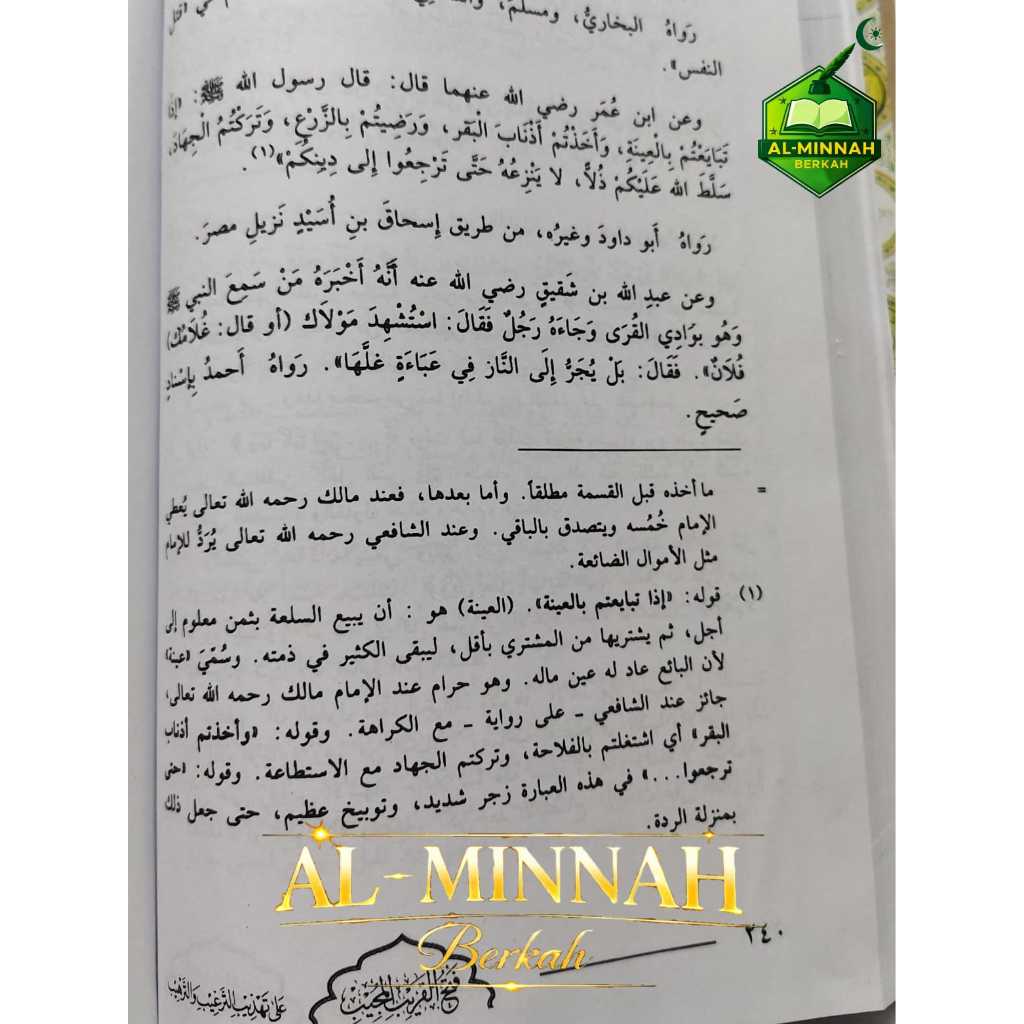 رَواهُ البخاريُّ، ومسلم،
النفس».
وعن ابن عُمَر رضي الله عنهما قال: قال رسول الله ﷺ: «إِذَا
تَبَايَعْتُمْ بِالْعِينَةِ، وَأَخَذْتُمْ أَذْنَابَ الْبَقَرِ، وَرَضِيتُمْ بِالزَّرْعِ، وَتَرَكْتُمُ الْجِهَادَ،
سَلَّطَ الله عَلَيْكُمْ ذُلاًّ، لا يَنْزِعُهُ حَتَّى تَرْجِعُوا إِلى دِينِكُمْ»(١).
رَواهُ أبو داودَ وغيرُه، من طريق إِسحاقَ بنِ أُسَيْدٍ نَزيلِ مصرَ.
وعن عبدِ الله بن شَقيقٍ رضي الله عنه أَنَّهُ أَخْبَرَهُ مَنْ سَمِعَ النبي ﷺ
وَهُو بوَادِي القُرَى وَجَاءَهُ رَجُلٌ فَقَالَ: اسْتُشْهِدَ مَوْلَاكَ (أو قال: غُلَامُكَ)
فُلَانٌ». فَقَالَ: بَلْ يُجَرُّ إِلَى النَّارِ فِي عَبَاءَةٍ غَلَّهَا». رَواهُ أَحمدُ بِإِسْنادٍ
صَحيحٍ.
= ما أخذه قبل القسمة مطلقاً. وأما بعدها، فعند مالك رحمه الله تعالى يُعطي
الإمام خُمُسه ويتصدق بالباقي. وعند الشافعي رحمه الله تعالى يُرَدُّ للإمام
مثل الأموال الضائعة.
(١) قوله: «إذا تبايعتم بالعينة». (العينة) هو : أن يبيع السلعة بثمن معلوم إلى
أجل، ثم يشتريها من المشتري بأقل، ليبقى الكثير في ذمته. وسُمِّيَ «عينة»
لأن البائع عاد له عين ماله. وهو حرام عند الإمام مالك رحمه الله تعالى،
جائز عند الشافعي - على رواية - مع الكراهة. وقوله: «وأخذتم أذناب
البقر» أي اشتغلتم بالفلاحة، وتركتم الجهاد مع الاستطاعة. وقوله: «حتى
ترجعوا...» في هذه العبارة زجر شديد، وتوبيخ عظيم، حتى جعل ذلك
بمنزلة الردة.
٢٤٠
فتح القريب المجيب
على تهذيب الترغيب والترهيب
AL-MINNAH
BERKAH
AL-MINNAH
Berkah